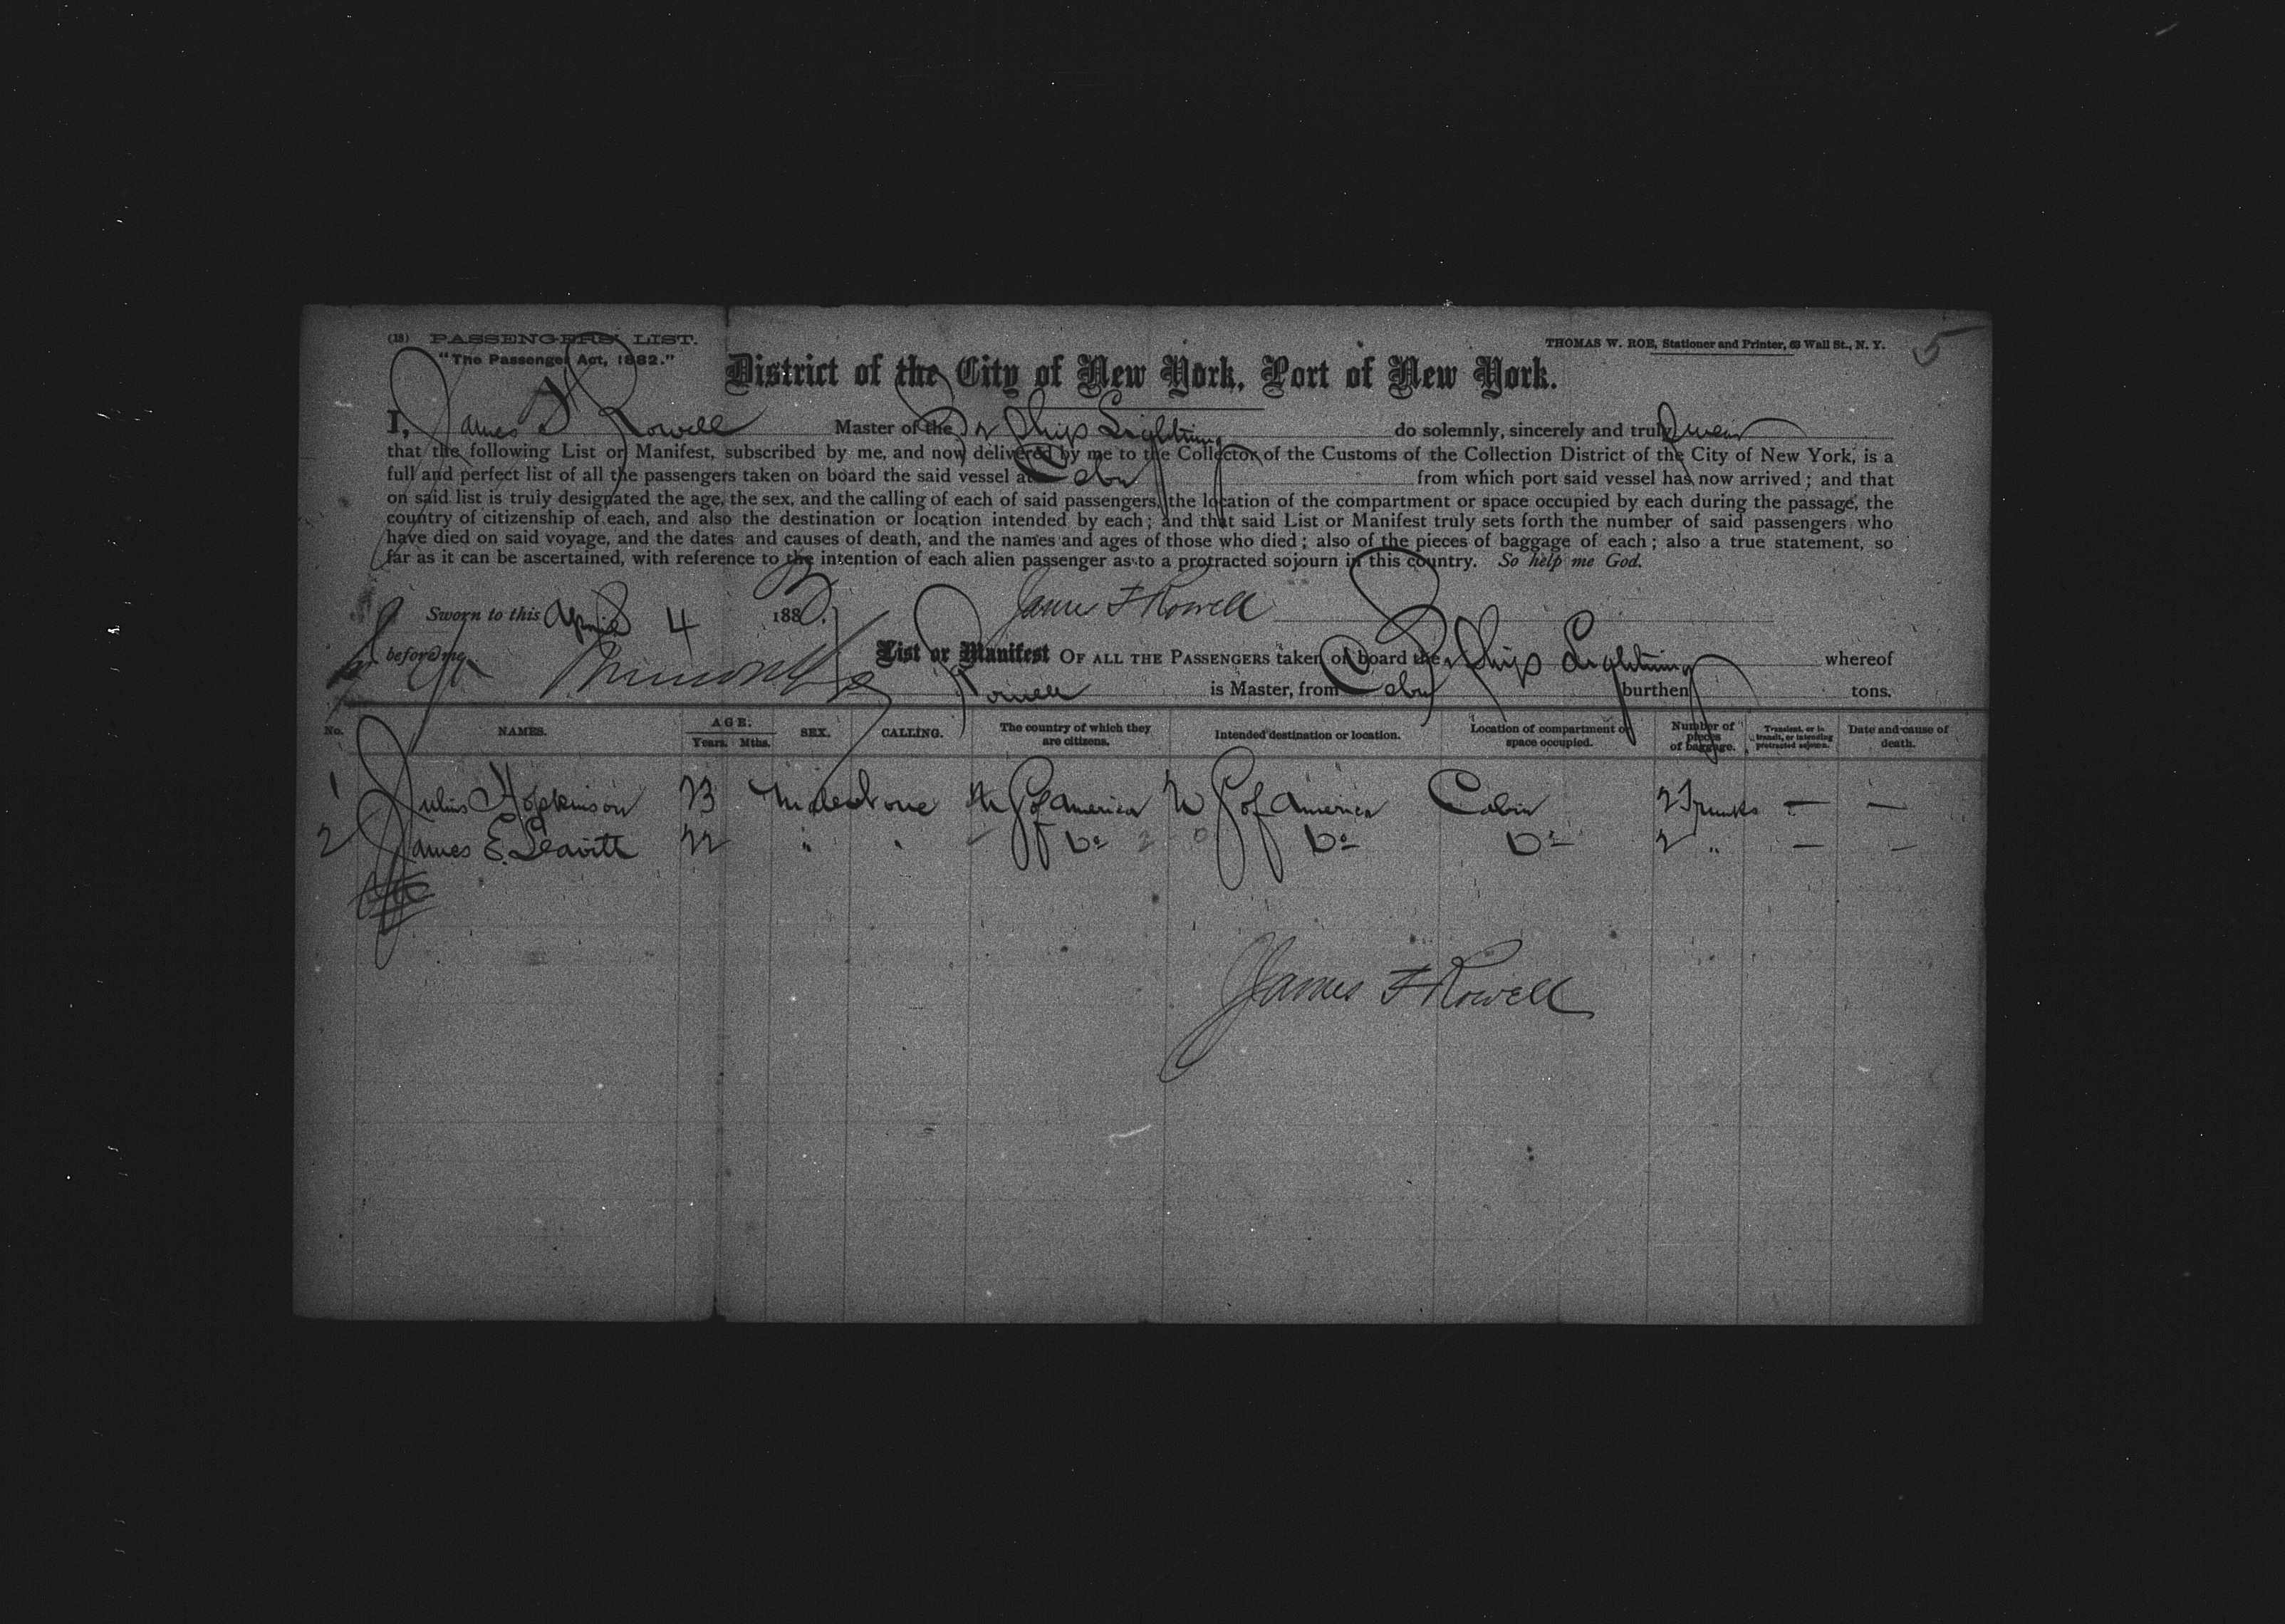 (18) PASSENGERS' LIST. THOMAS W. ROE, Stationer and Printer, 63 Wall St., N. Y. 5
"The Passenger Act, 1882."
District of the City of New York, Port of New York.
I, James F Rowell Master of the Ship Lightning do solemnly, sincerely and truly swear
that the following List or Manifest, subscribed by me, and now delivered by me to the Collector of the Customs of the Collection District of the City of New York, is a
full and perfect list of all the passengers taken on board the said vessel at Cebu from which port said vessel has now arrived ; and that
on said list is truly designated the age, the sex, and the calling of each of said passengers, the location of the compartment or space occupied by each during the passage, the
country of citizenship of each, and also the destination or location intended by each ; and that said List or Manifest truly sets forth the number of said passengers who
have died on said voyage, and the dates and causes of death, and the names and ages of those who died ; also of the pieces of baggage of each ; also a true statement, so
far as it can be ascertained, with reference to the intention of each alien passenger as to a protracted sojourn in this country. So help me God.
Sworn to this April 4 188 James F Rowell
before me
List or Manifest OF ALL THE PASSENGERS taken on board the Ship Lightning whereof
Rowell is Master, from Cebu burthen tons.
No. NAMES. AGE. Years. Mths. SEX. CALLING. The country of which they are citizens. Intended destination or location. Location of compartment or space occupied. Number of pieces of baggage. Transient, or in transit, or intending protracted sojourn. Date and cause of death.
1 Julius Hopkinson 23 Male None U S of America U S of America Cabin 2 Trunks — —
2 James E. Leavitt 22 " " Do Do Do 2 " — —
James F Rowell